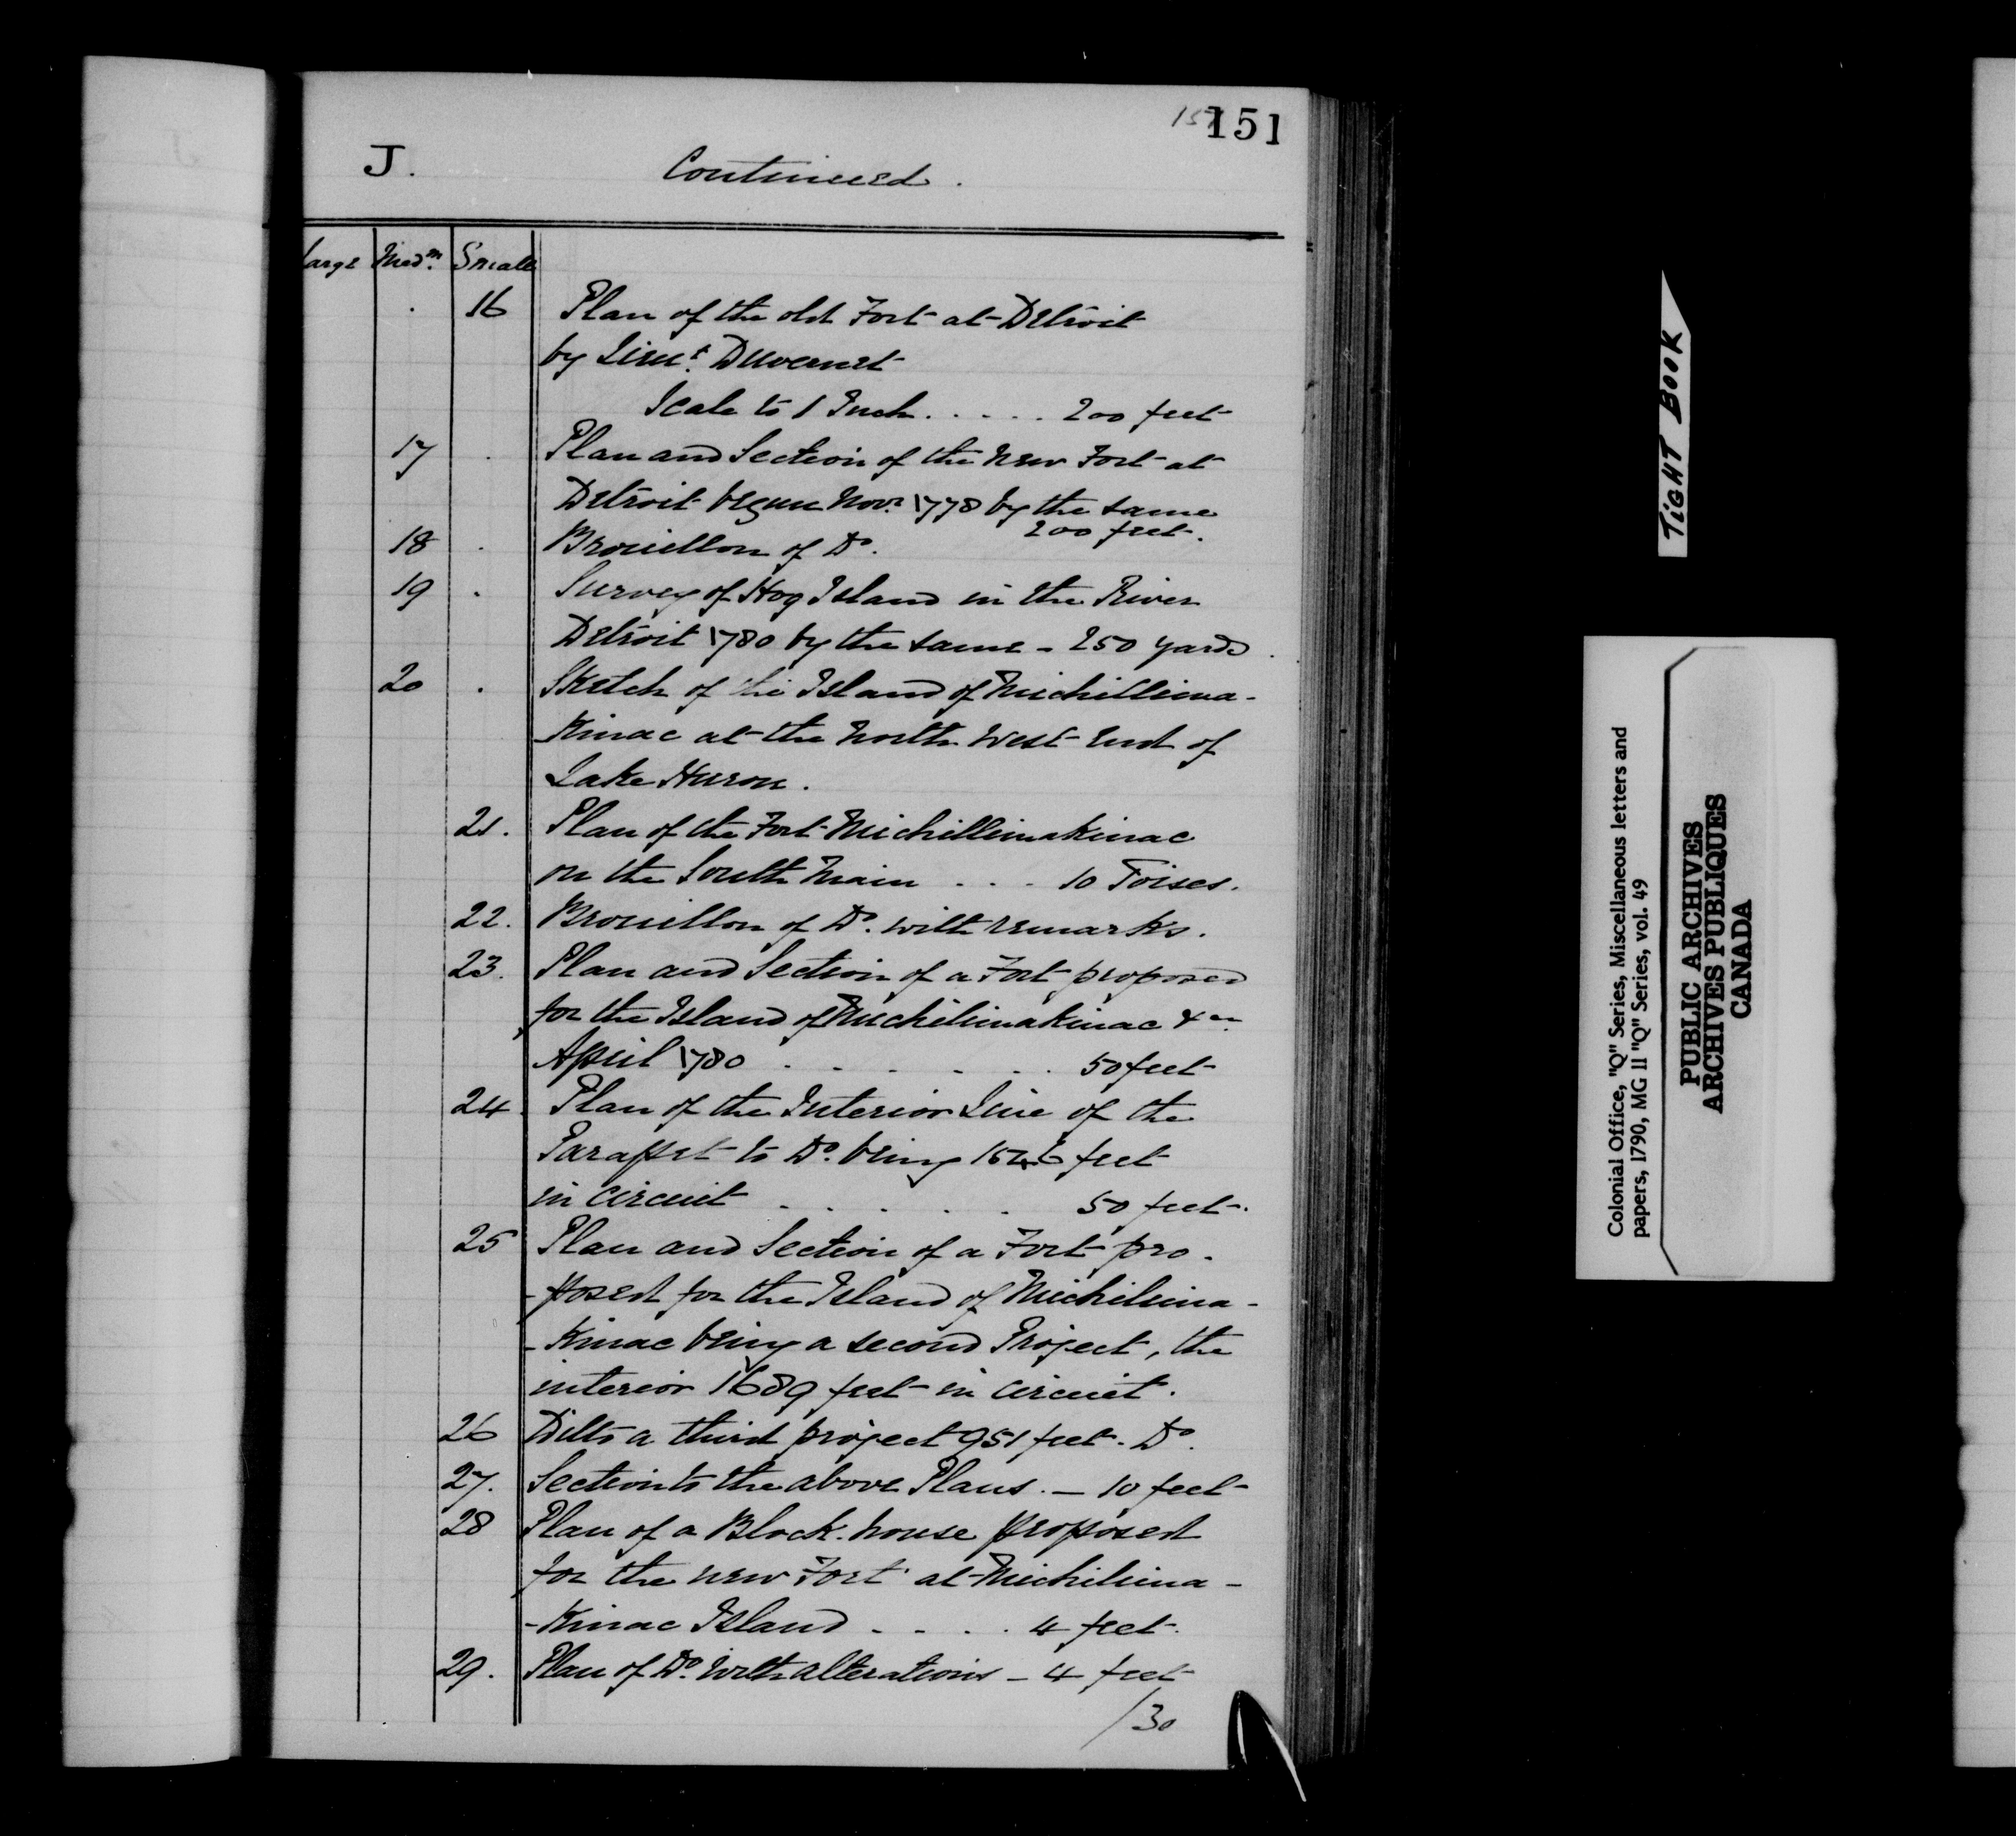 151
J. Continued.
Large Medm. Small
16 Plan of the old Fort at Detroit
by Lieut. Duvernet
Scale to 1 Inch . . . . . 200 feet
17 Plan and Section of the New Fort at
Detroit begun Novr. 1778 by the same
200 feet.
18 Brouillon of Do.
19 Survey of Hog Island in the River
Detroit 1780 by the same - 250 yards.
20 Sketch of the Island of Michillima-
-kinac at the North West End of
Lake Huron.
21. Plan of the Fort Michillimakinac
on the South Main . . . 10 Toises.
22. Brouillon of Do. with remarks.
23. Plan and Section of a Fort proposed
for the Island of Michilimakinac &ca.
April 1780 . . . . . . 50 feet
24. Plan of the Interior Line of the
Parapet to Do. being 1546 feet
in circuit . . . . . 50 feet.
25 Plan and Section of a Fort pro-
-posed for the Island of Michilima-
-kinac being a second Project, the
interior 1689 feet in circuit.
26 Ditto a third project 951 feet. Do.
27. Section to the above Plans. - 10 feet
28 Plan of a Block-house proposed
for the new Fort at Michilima-
-kinac Island . . . . 4 feet.
29. Plan of Do. with alterations - 4 feet
/30
TIGHT BOOK
Colonial Office, "Q" Series, Miscellaneous letters and
papers, 1790, MG 11 "Q" Series, vol. 49
PUBLIC ARCHIVES
ARCHIVES PUBLIQUES
CANADA